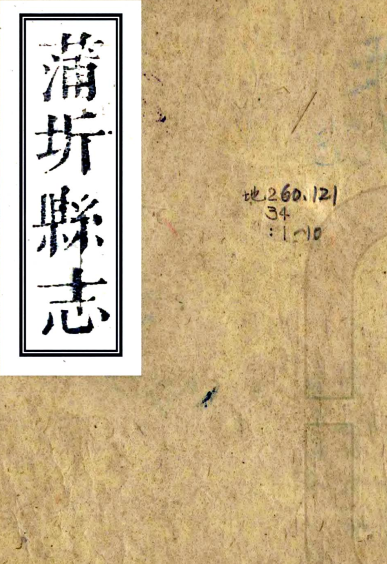 蒲圻縣志
地260.121
34
:1~10